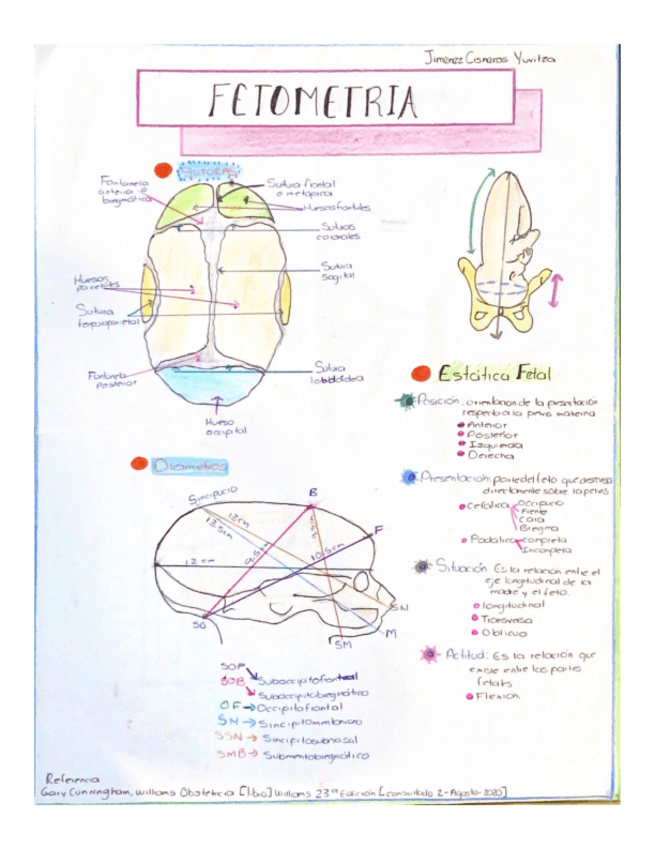 Jimenez Cisneros Yuvitza
FETOMETRIA
SUTURAS
Fontanela
anterior o
bregmática
Sutura frontal
o metópica
Huesos frontales
Suturas
coronales
Sutura
sagital
Huesos
parietales
Sutura
Fontanela
Posterior
Sutura
lambdoidea
Hueso
occipital
Diametros
Sincipucio
B
F
13cm
13.5cm
9.5cm
9.5cm
10.5cm
12 cm
SO
SN
M
SM
SOF
SOB
Suboccipitofrontal
Suboccipitobregmático
OF → Occipitofrontal
SN → Sincipitomentoniano
SSN → Sincipitosubnasal
SMB → Submentobregmático
Estática Fetal
Posición: orientacion de la presentación
respecto a la pelvis materna
Anterior
Posterior
Izquierda
Derecha
Presentación: parte del feto que descansa
directamente sobre la pelvis
Cefálica
Occipucio
Frente
Cara
Bregma
Podalica
completa
Incompleta
Situación Es la relación entre el
eje longitudinal de la
madre y el feto.
longitudinal
Transversa
Oblicuo
Actitud: Es la relación que
existe entre las partes
fetales
Flexion
Referencia
Gary Cunningham, Williams Obstetricia [libro] Williams 23ª Edición [consultado 2-Agosto-2020]